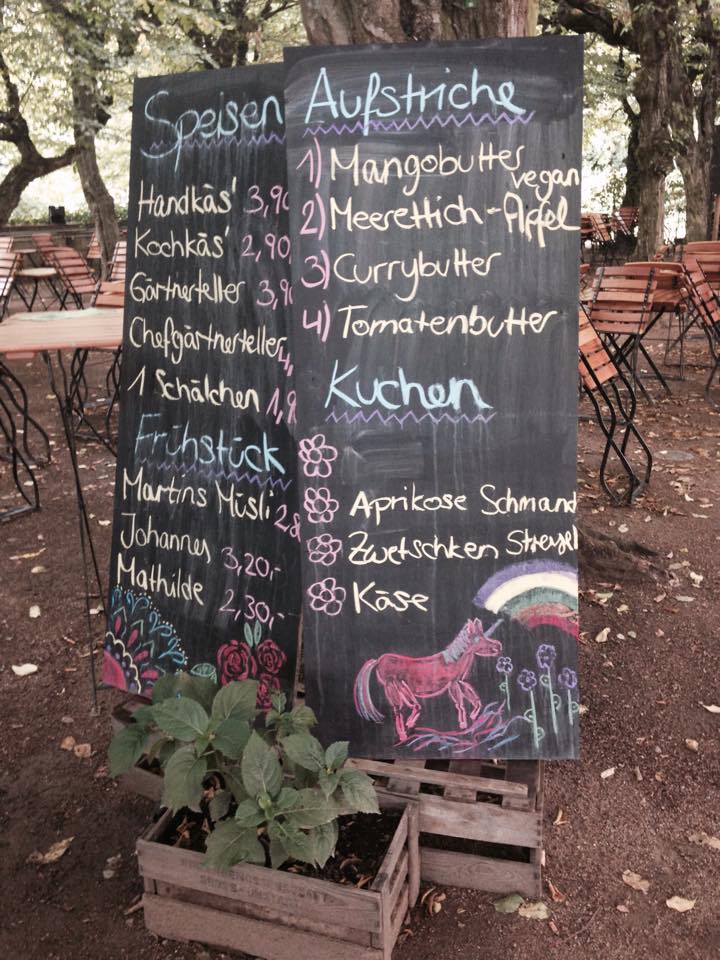 Speisen
Handkäs' 3,90
Kochkäs' 2,90
Gärtnerteller 3,90
Chefgärtnerteller 4,
1 Schälchen 1,9
Frühstück
Martins Müsli 2,8
Johannes 3,20,-
Mathilde 2,30,-
Aufstriche
1) Mangobutter vegan
2) Meerettich-Apfel
3) Currybutter
4) Tomatenbutter
Kuchen
Aprikose Schmand
Zwetschken Streusel
Käse